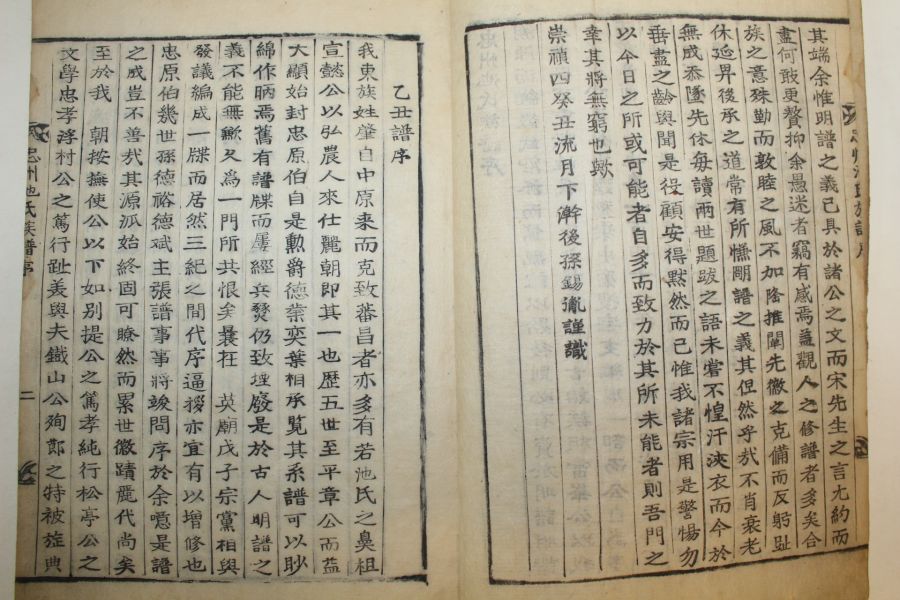 其端余惟明譜之義已具於諸公之文而宋先生之言尤約而
盡何敢更贅抑余愚迷者竊有感焉盖觀人之修譜者多矣合
族之意殊勤而敦睦之風不加隆推闡先徽之克備而反躬趾
休延昇後承之道常有所憮嘲譜之義其但然乎㦲不肖衰老
無成忝墜先休每讀兩世題跋之語未嘗不惶汗浹衣而今於
垂盡之齡與聞是役顧安得黙然而已惟我諸宗用是警惕勿
以今日之所或可能者自多而致力於其所未能者則吾門之
幸其將無窮也歟
崇禎四癸丑流月下澣後孫錫胤謹識
乙丑譜序
我東族姓肇自中原来而克致蕃昌者亦多有若池氏之鼻祖
宣懿公以弘農人來仕麗朝即其一也歷五世至平章公而益
大顯始封忠原伯自是勳爵德業奕葉相承覧其系譜可以眇
綿作昞焉舊有譜牒而屢經兵燹仍致堙廢是於古人明譜之
義不能無歉久爲一門所共恨矣曩在 英廟戊子宗黨相與
發議編成一牒而居然三紀之間代序逼授亦宜有以增修也
忠原伯幾世孫德裕德斌主張譜事事將竣問序於余噫是譜
之成豈不善㦲其源派始終固可瞭然而累世徽蹟麗代尚矣
至於我 朝按撫使公以下如別提公之篤孝純行松亭公之
文學忠孝浮村公之篤行趾美與夫鐵山公殉鄭之特被旌典
忠州池氏族譜序
二